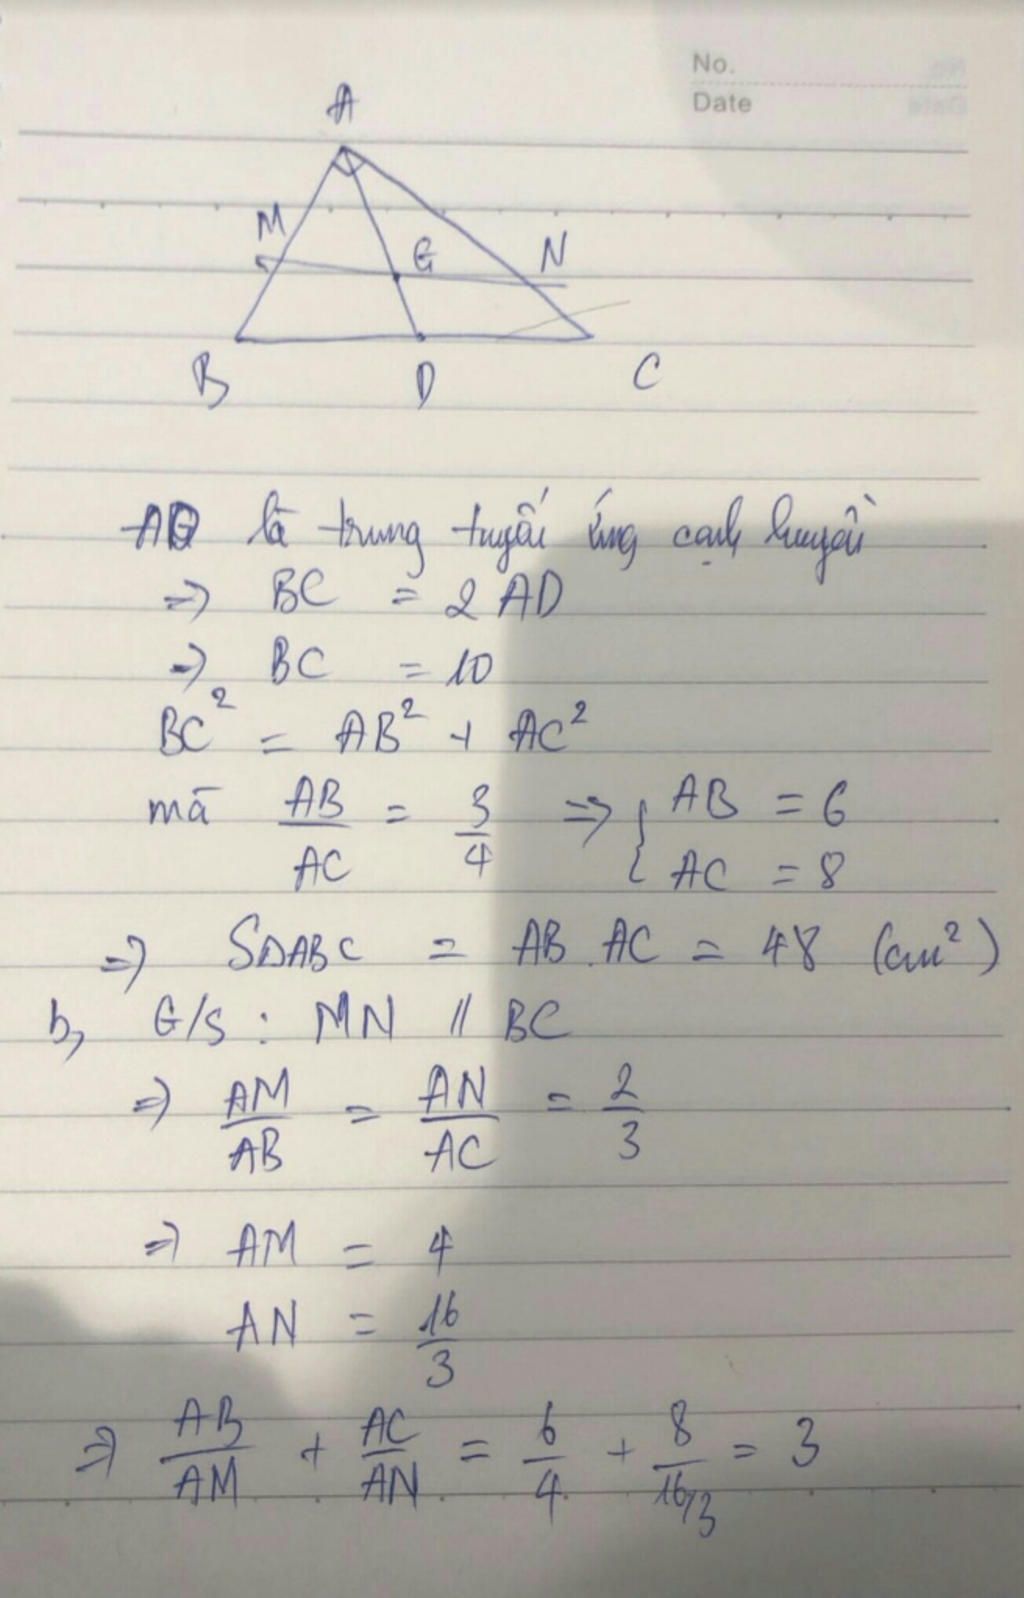 No.
Date
A
M
G
N
B
D
C
AD là trung tuyến ứng cạnh huyền
=> BC = 2 AD
=> BC = 10
BC² = AB² + AC²
mà AB/AC = 3/4 => { AB = 6
AC = 8
=> SΔABC = AB . AC = 48 (cm²)
b, G/s : MN // BC
=> AM/AB = AN/AC = 2/3
=> AM = 4
AN = 16/3
=> AB/AM + AC/AN = 6/4 + 8/16/3 = 3